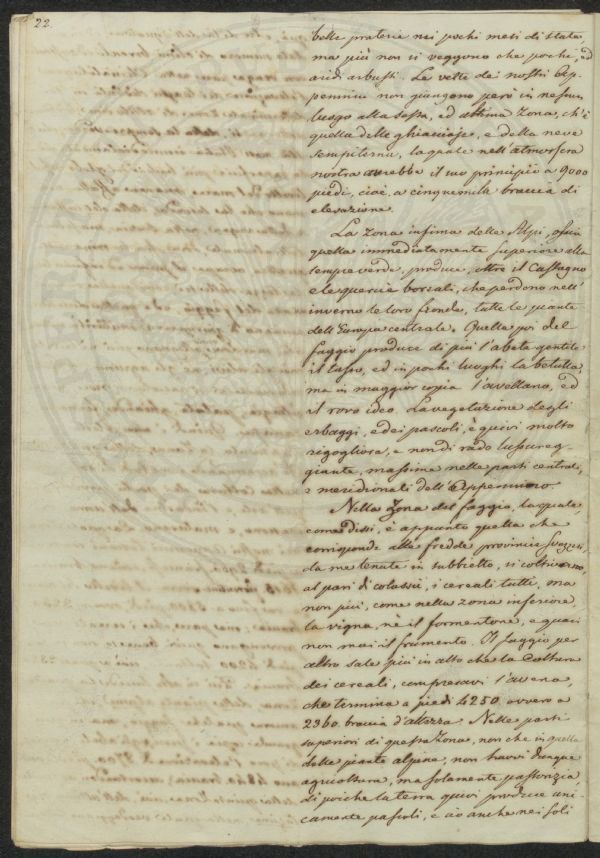 22.
belle praterie nei pochi mesi di state,
ma più non si veggono che pochi, ed
aridi arbusti. Le vette dei nostri Ap-
pennini non giungono però in nessun
luogo alla sesta, ed ultima zona, ch'è
quella delle ghiacciaje, e della neve
sempiterna, la quale nell'atmosfera
nostra avrebbe il suo principio a 9000
piedi, cioè, a cinquemila braccia di
elevazione.
La Zona infima delle Alpi, ossia
quella immediatamente superiore alla
sempreverde, produce, oltre il Castagno
e le quercie boreali, che perdono nell'
inverno le loro fronde, tutte le piante
dell'Europa centrale. Quella poi del
faggio produce di più l'abete gentile
il tasso, ed in pochi luoghi la betulla,
ma in maggior copia l'avellano, ed
il rovo ideo. La vegetazione degli
erbaggi, e dei pascoli, è quivi molto
rigogliosa, e non di rado lussureg-
giante, massime nelle parti centrali,
e meridionali dell'Appennino.
Nella Zona del faggio, la quale,
come dissi, è appunto quella che
corrisponde alle fredde provincie Svezzesi,
da me tenute in subbietto, si coltivano,
al pari di colassù, i cereali tutti, ma
non più, come nella zona inferiore,
la vigna, nè il formentone, e quasi
non mai il frumento. Il faggio per
altro sale più in alto che la Coltura
dei cereali, compresavi l'avena,
che termina a piedi 4250. ovvero a
2360. braccia d'altezza. Nelle parti
superiori di questa Zona, non che in quella
delle piante alpine, non havvi dunque
agricoltura, ma solamente pastorizia,
di poichè la terra quivi produce uni-
camente pascoli, e ciò anche nei soli